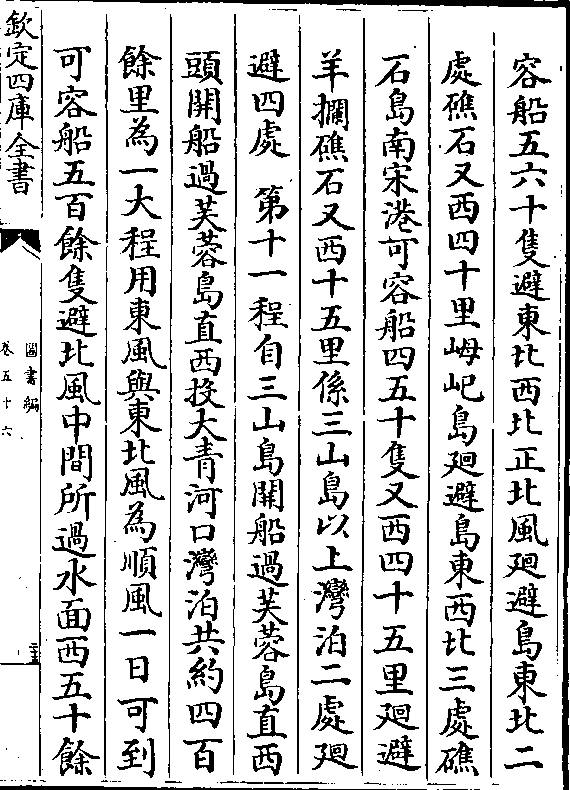 容船五六十隻避東北西北正北風廻避島東北二
處礁石又西四十里㟂屺島廻避島東西北三處礁
石島南宋港可容船四五十隻又西四十五里廻避
羊攔礁石又西十五里係三山島以上灣泊二處廻
避四處　第十一程自三山島開船過芙蓉島直西
頭開船過芙蓉島直西投大青河口灣泊共約四百
餘里為一大程用東風與東北風為順風一日可到
可容船五百餘隻避北風中間所過水面西五十餘
欽定四庫全書
圖書編
卷五十六